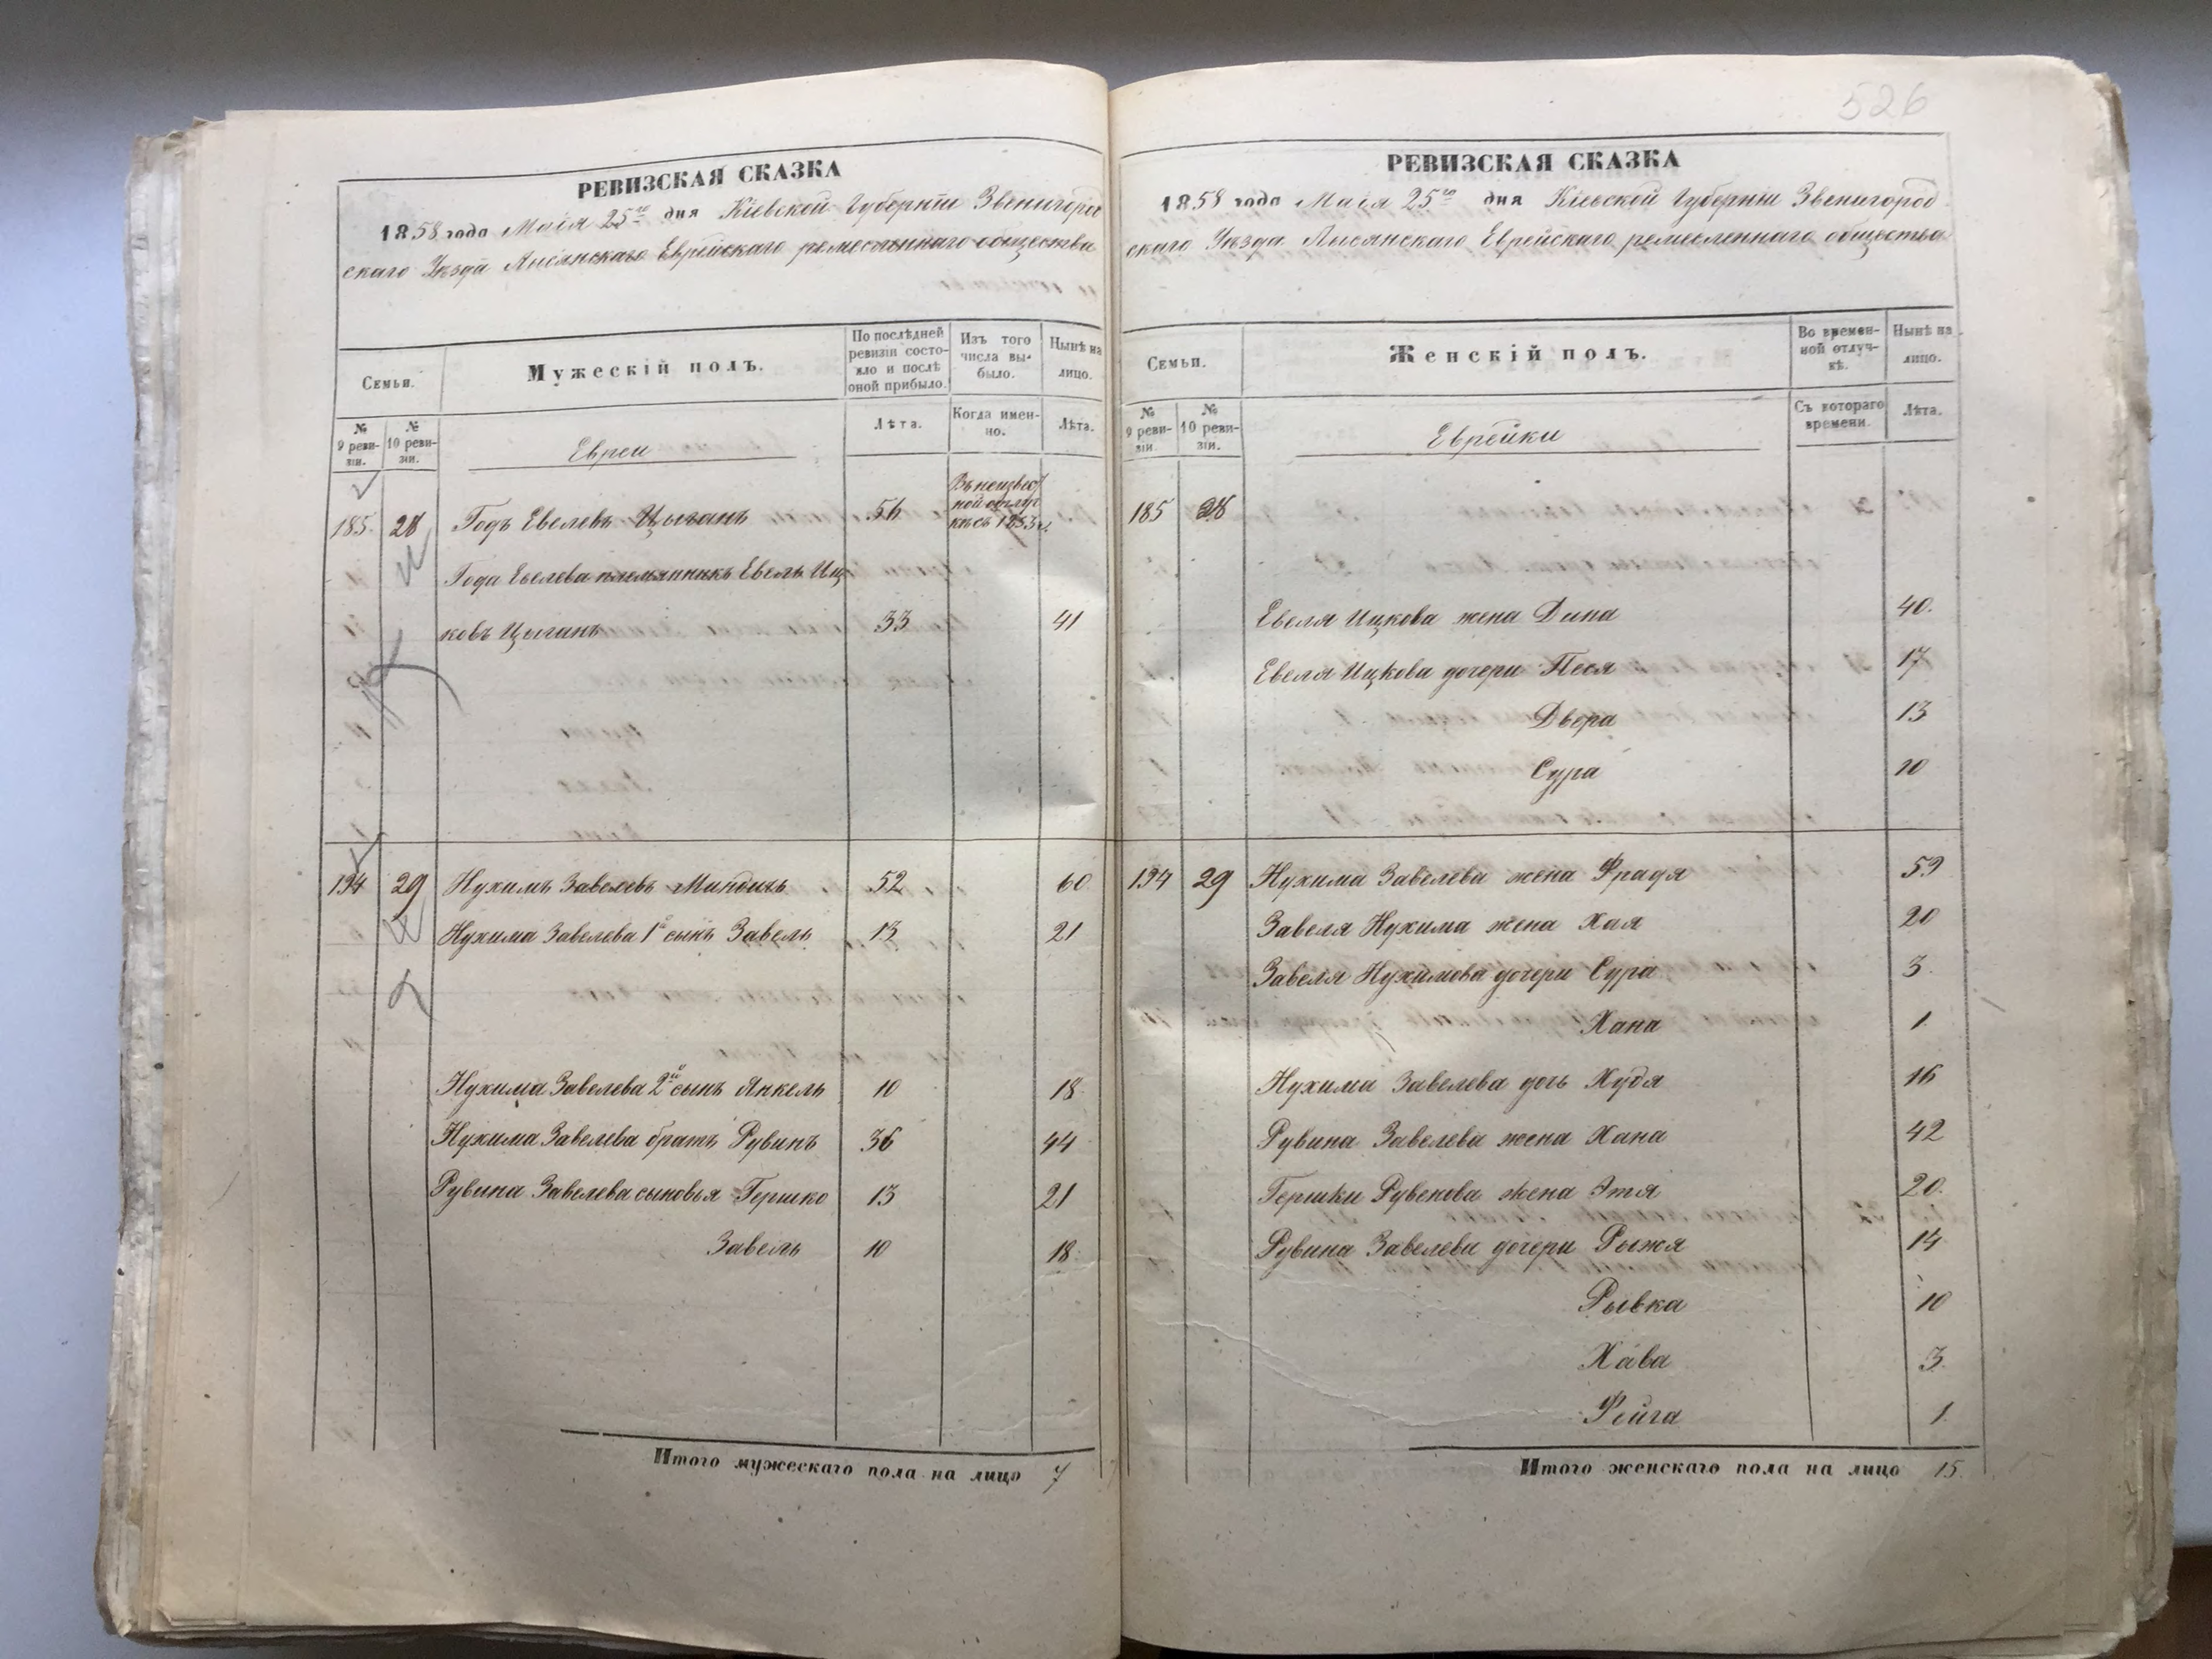 526
РЕВИЗСКАЯ СКАЗКА
1858 года Маія 25го дня Кіевской Губерніи Звенигород
скаго Уѣзда Лысянскаго Еврейскаго ремесленнаго общества
Семьи.
Мужескій полъ.
По послѣдней ревизіи состояло и послѣ оной прибыло.
Изъ того числа выбыло.
Нынѣ на лицо.
№ 9 ревизіи.
№ 10 ревизіи.
Евреи
Лѣта.
Когда именно.
Лѣта.
185. 28 Годъ Евелевъ Цыганъ 56 Въ неизвѣст
ной отлуч
кѣ съ 1853 г.
Года Евелева племянникъ Евель Иц
ковъ Цыганъ 33 41
194 29 Нухимъ Завелевъ 52 60
Нухима Завелева 1й сынъ Завель 13 21
Нухима Завелева 2й сынъ Янкель 10 18
Нухима Завелева братъ Рувинъ 36 44
Рувина Завелева сыновья Гершко 13 21
Завель 10 18
Итого мужескаго пола на лицо 7
РЕВИЗСКАЯ СКАЗКА
1858 года Маія 25го дня Кіевской Губерніи Звенигород
скаго Уѣзда Лысянскаго Еврейскаго ремесленнаго общества
Семьи.
Женскій полъ.
Во временной отлучкѣ.
Нынѣ на лицо.
№ 9 ревизіи.
№ 10 ревизіи.
Еврейки
Съ котораго времени.
Лѣта.
185 28
Евеля Ицкова жена Дина 40.
Евеля Ицкова дочери Песя 17
Двора 13
Сура 10
194 29 Нухима Завелева жена Фрадя 59
Завеля Нухима жена Хая 20
Завеля Нухимова дочери Сура 3.
Хана 1
Нухима Завелева дочь Худя 16
Рувина Завелева жена Хана 42
Гершки Рувенова жена Этя 20.
Рувина Завелева дочери Рыжя 14
Рывка 10
Хава 3.
Фейга 1.
Итого женскаго пола на лицо 15.